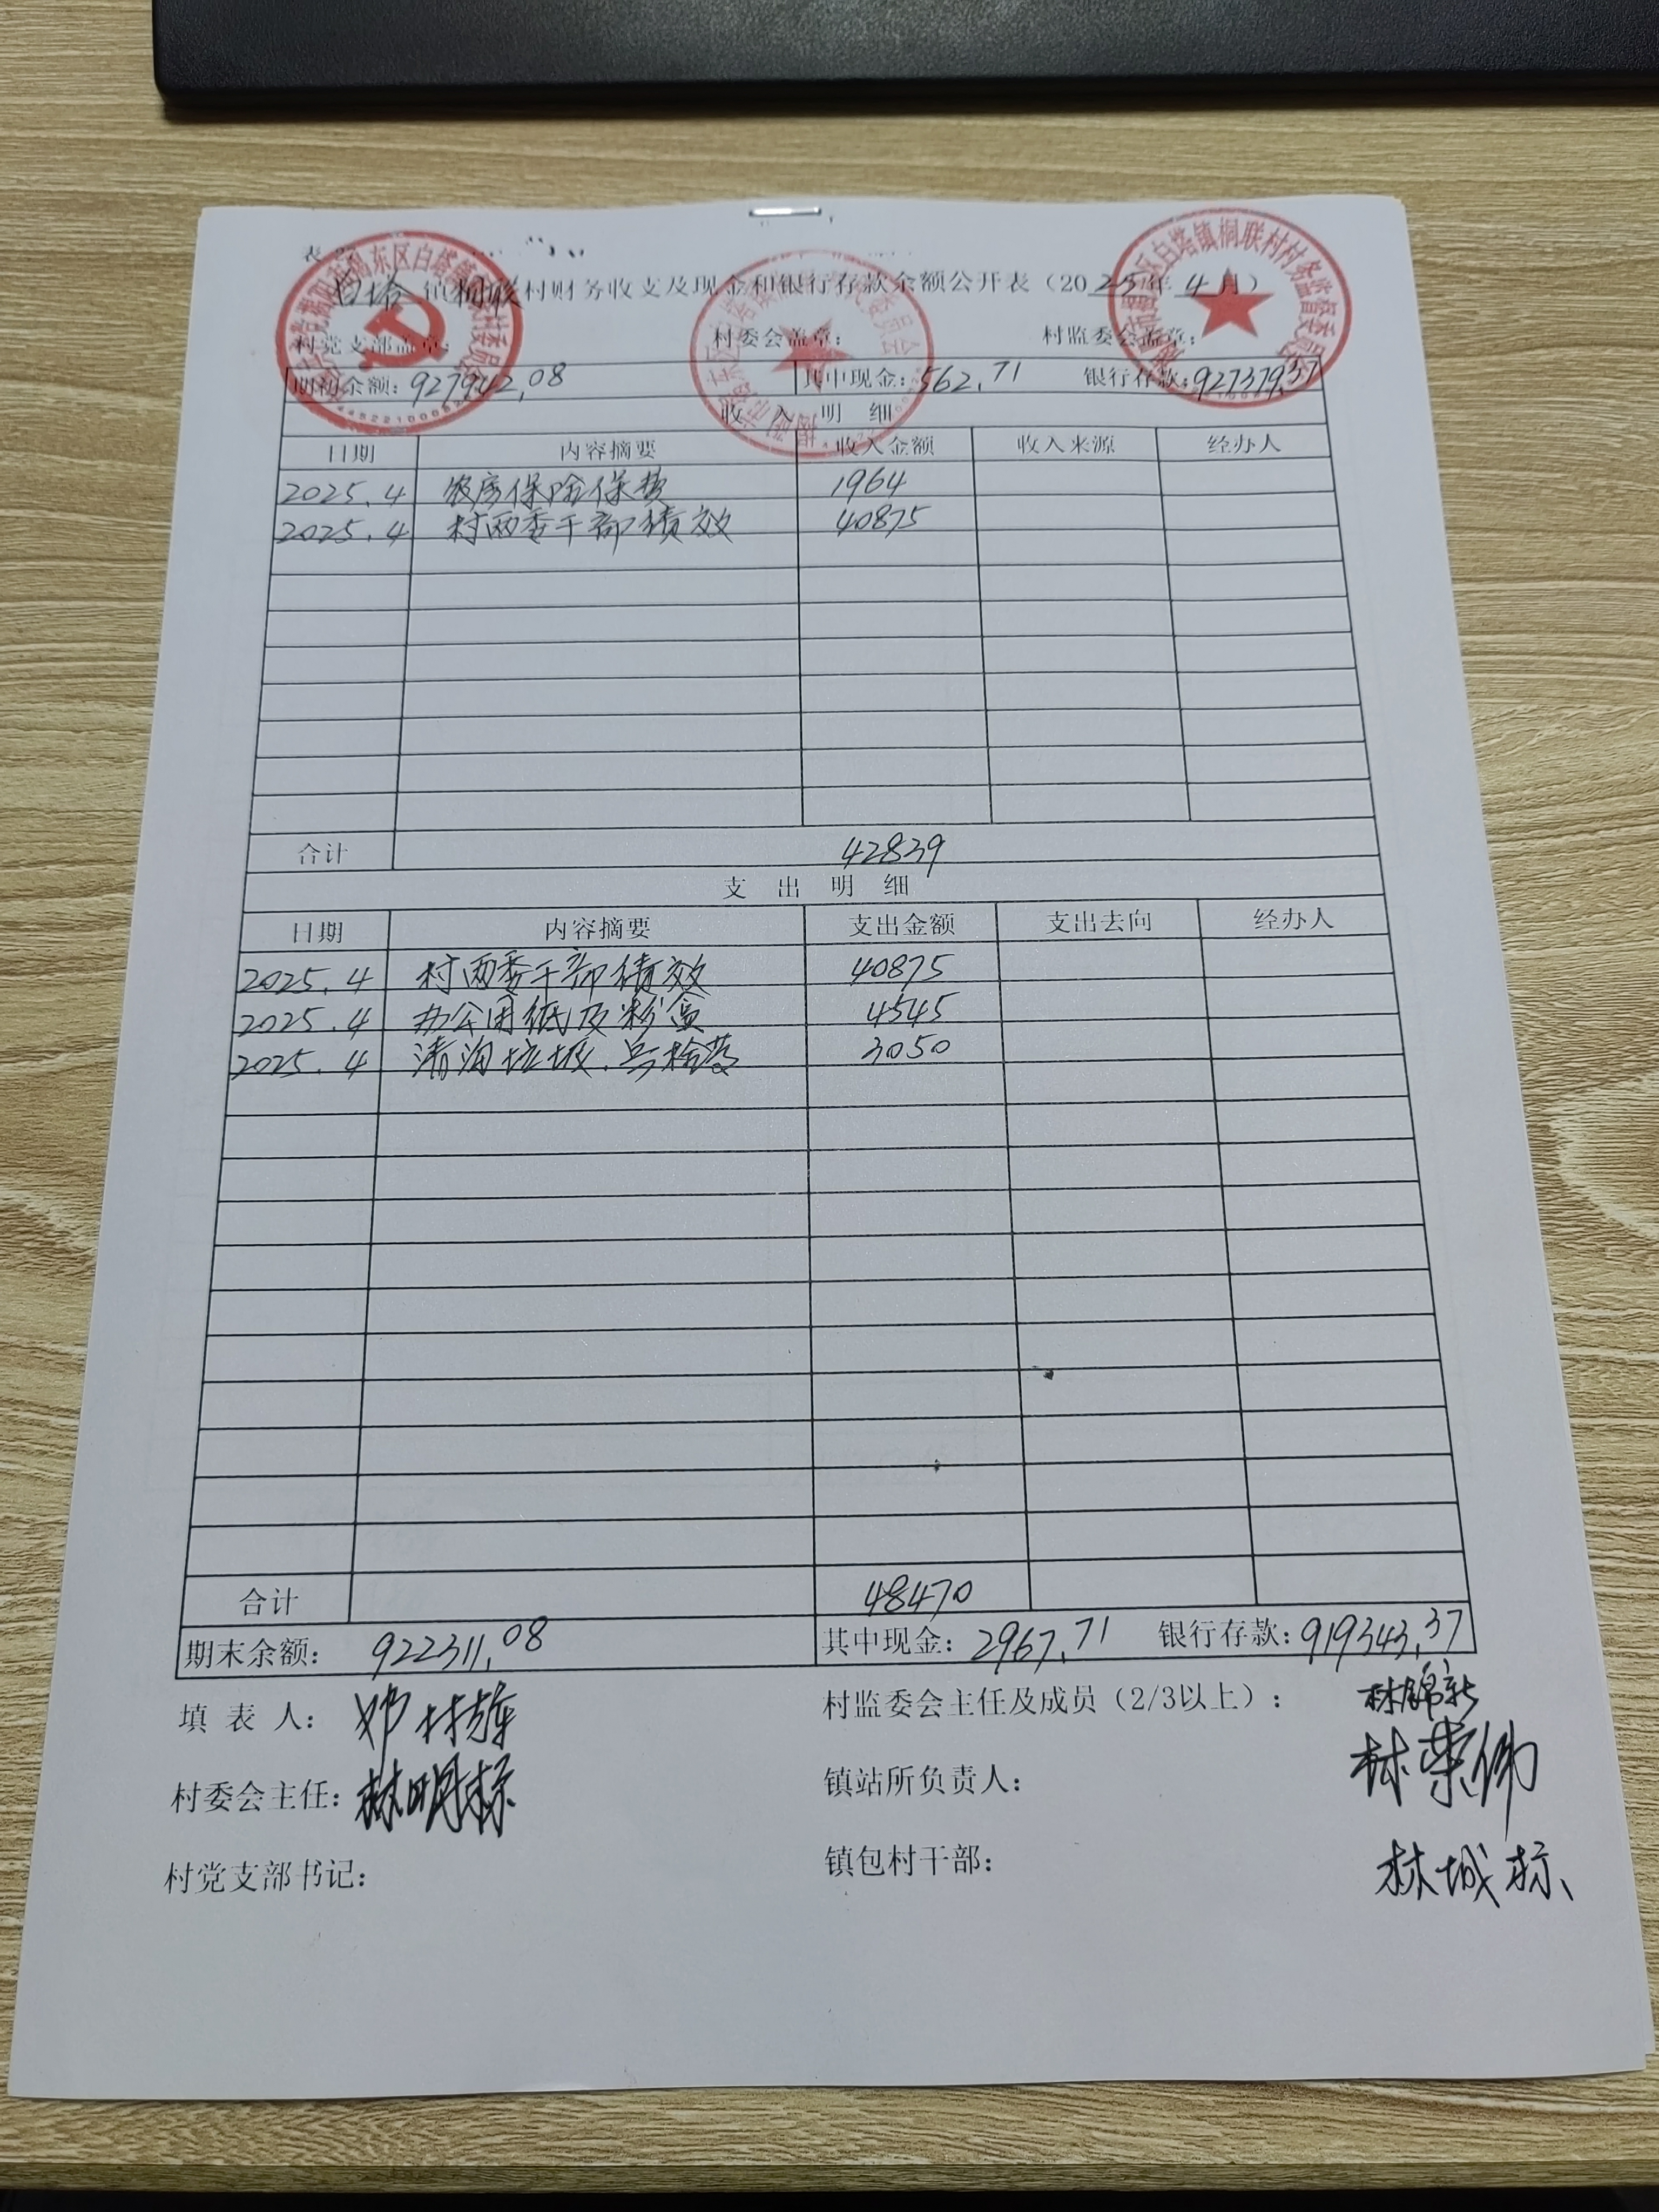 白塔镇桐联村财务收支及现金和银行存款余额公开表（2025年4月）
村党支部盖章： 村委会盖章： 村监委会盖章：
期初余额：927942.08 其中现金：562.71 银行存款：927379.37
收入明细
日期 内容摘要 收入金额 收入来源 经办人
2025.4 农房保险保费 1964
2025.4 村两委干部绩效 40875
合计 42839
支出明细
日期 内容摘要 支出金额 支出去向 经办人
2025.4 村两委干部绩效 40875
2025.4 办公用纸及粉盒 4545
2025.4 清沟垃圾、兵检费 3050
合计 48470
期末余额：922311.08 其中现金：2967.71 银行存款：919343.37
填表人： 村监委会主任及成员（2/3以上）：林锦新
林荣伟
村委会主任：林明标 镇站所负责人：
村党支部书记： 镇包村干部：
林城标